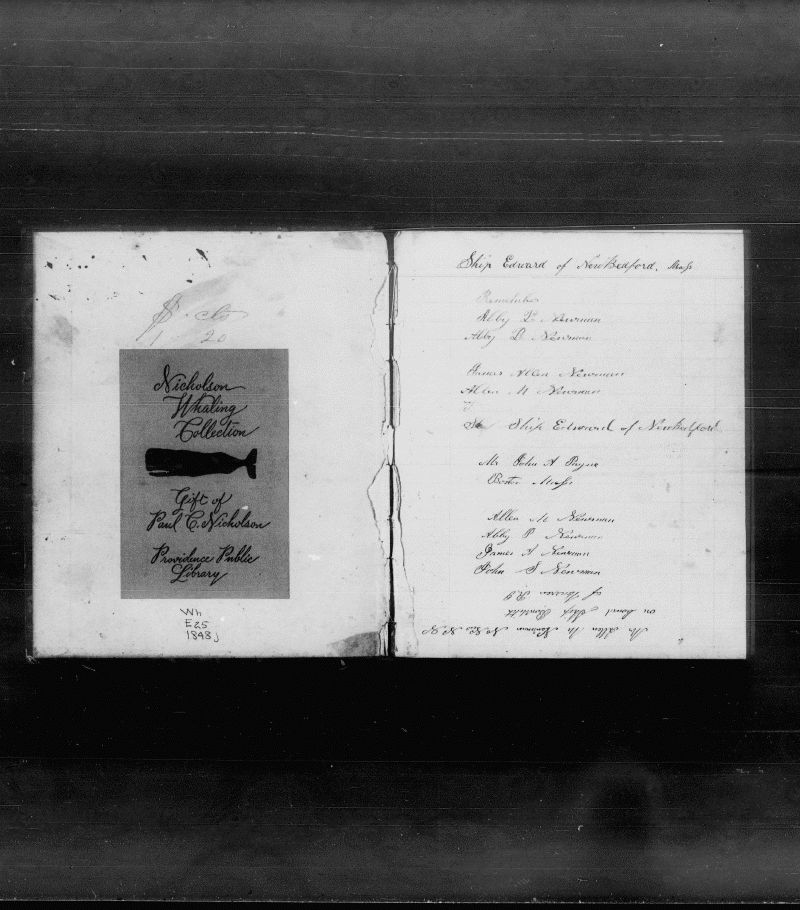 $ . cts
1 20
Nicholson
Whaling
Collection
Gift of
Paul C. Nicholson
Providence Public
Library
Wh
E25
1848j
Ship Edward of NewBedford. Mass
Remember
Abby P. Newman
Abby P. Newman
James Allen Newman
Allen M Newman
Ship Edward of NewBedford
Mr John A Payne
Boston Mass
Allen M Newman
Abby P Newman
James A Newman
John S Newman
Mr Allen M Newman
on board Ship
of Warren R.I